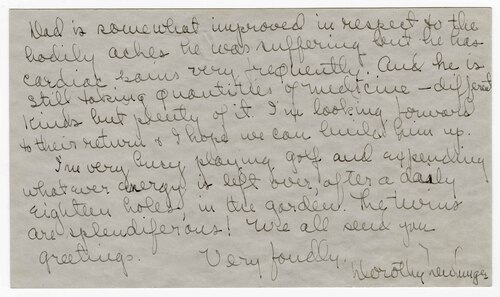 Dad is somewhat improved in respect to the
bodily aches he was suffering but he has
cardiac pains very frequently. And he is
still taking quantities of medicine – different
kinds but plenty of it. I'm looking forward
to their return & I hope we can build him up.
I'm very busy playing golf and expending
whatever energy is left over, after a daily
eighteen holes, in the garden. The
are splendiferous! We all send you
greetings.
Very fondly,
Dorothy